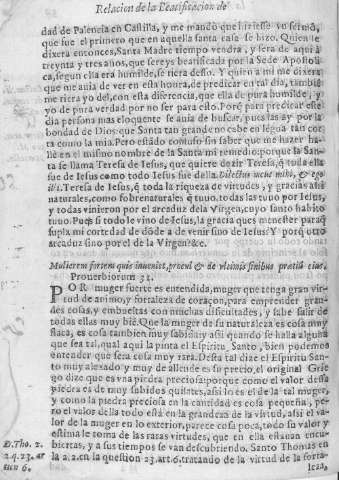 Relacion de la Beatificacion de
dad de Palencia en Castilla, y me mandò que hiziesse vn sermõ,
que fue el primero que en aquella santa casa se hizo. Quien le
dixera entonces, Santa Madre tiempo vendra, y sera de aqui à
treynta y tres años, que sereys beatificada por la Sede Apostoli-
ca, segun ella era humilde, se riera desso. Y quien a mi me dixera
que me auia de ver en esta honra, de predicar en tal dia, tambiẽ
me riera yo del, con esta diferencia, que ella de pura humilde, y
yo de pura verdad por no ser para esto. Porq̃ para predicar este
dia persona mas eloquente se auia de buscar, pues las ay por la
bondad de Dios que Santa tan grande no cabe en lẽgua tan cor
ta como la mia. Pero estãdo confuso sin saber que me hazer ha-
llè en el mismo nombre de la Santa mi remedio: porque la San-
ta se llama Teresa de Iesus, que quiere dezir Teresa, q̃ toda ella
fue de Iesus como todo Iesus fue della. Dilectus meus mihi, & ego
illi. Teresa de Iesus, q̃ toda la riqueza de virtudes, y gracias assi
naturales, como sobrenaturales q̃ tuuo, todas las tuuo por Iesus,
y todas vinieron por el arcaduz dela Virgen, cuyo santo habito
tuuo. Pues si todo le vino de Iesus, la gracia que es menester para q̃
supla mi cortedad de dõde a de venir sino de Iesus? Y porq̃ otro
arcaduz sino por el de la Virgen? &c.
Mulierem fortem quis inueniet, procul & de vltimis finibus pretiũ eius.
Prouerbiorum 31.
POR muger fuerte es entendida, muger que tenga gran vir-
tud de animo, y fortaleza de coraçon, para emprender gran-
des cosas, y embuestas con muchas dificultades, y sabe salir de
todas ellas muy biẽ. Que la muger de su naturaleza es cosa muy
flaca, es cosa tambien muy sabida: y assi quando se halla alguna
que sea tal, qual aqui la pinta el Espiritu Santo, bien podemos
entender que sera cosa muy rara. Desta tal dize el Espiritu San-
to muy alexado y muy de allende es su precio, el original Grie
go dize que es vna piedra preciosa: porque como el valor dessa
piedra es de muy subidos quilates, assi lo es el de la tal muger,
y como la piedra preciosa en la cantidad es cosa pequeña, pe-
ro el valor della todo està en la grandeza de la virtud, assi el va-
lor de la muger en lo exterior, parece cosa poca, todo su valor y
estima le toma de las raras virtudes, que en ella estauan encu-
biertas, y a sus tiempos se van descubriendo. Santo Thomas en
la 2. 2. en la question 23. art. 6. tratando de la virtud de la forta-
leza,
D. Tho. 2.
2. q. 23. ar
6.